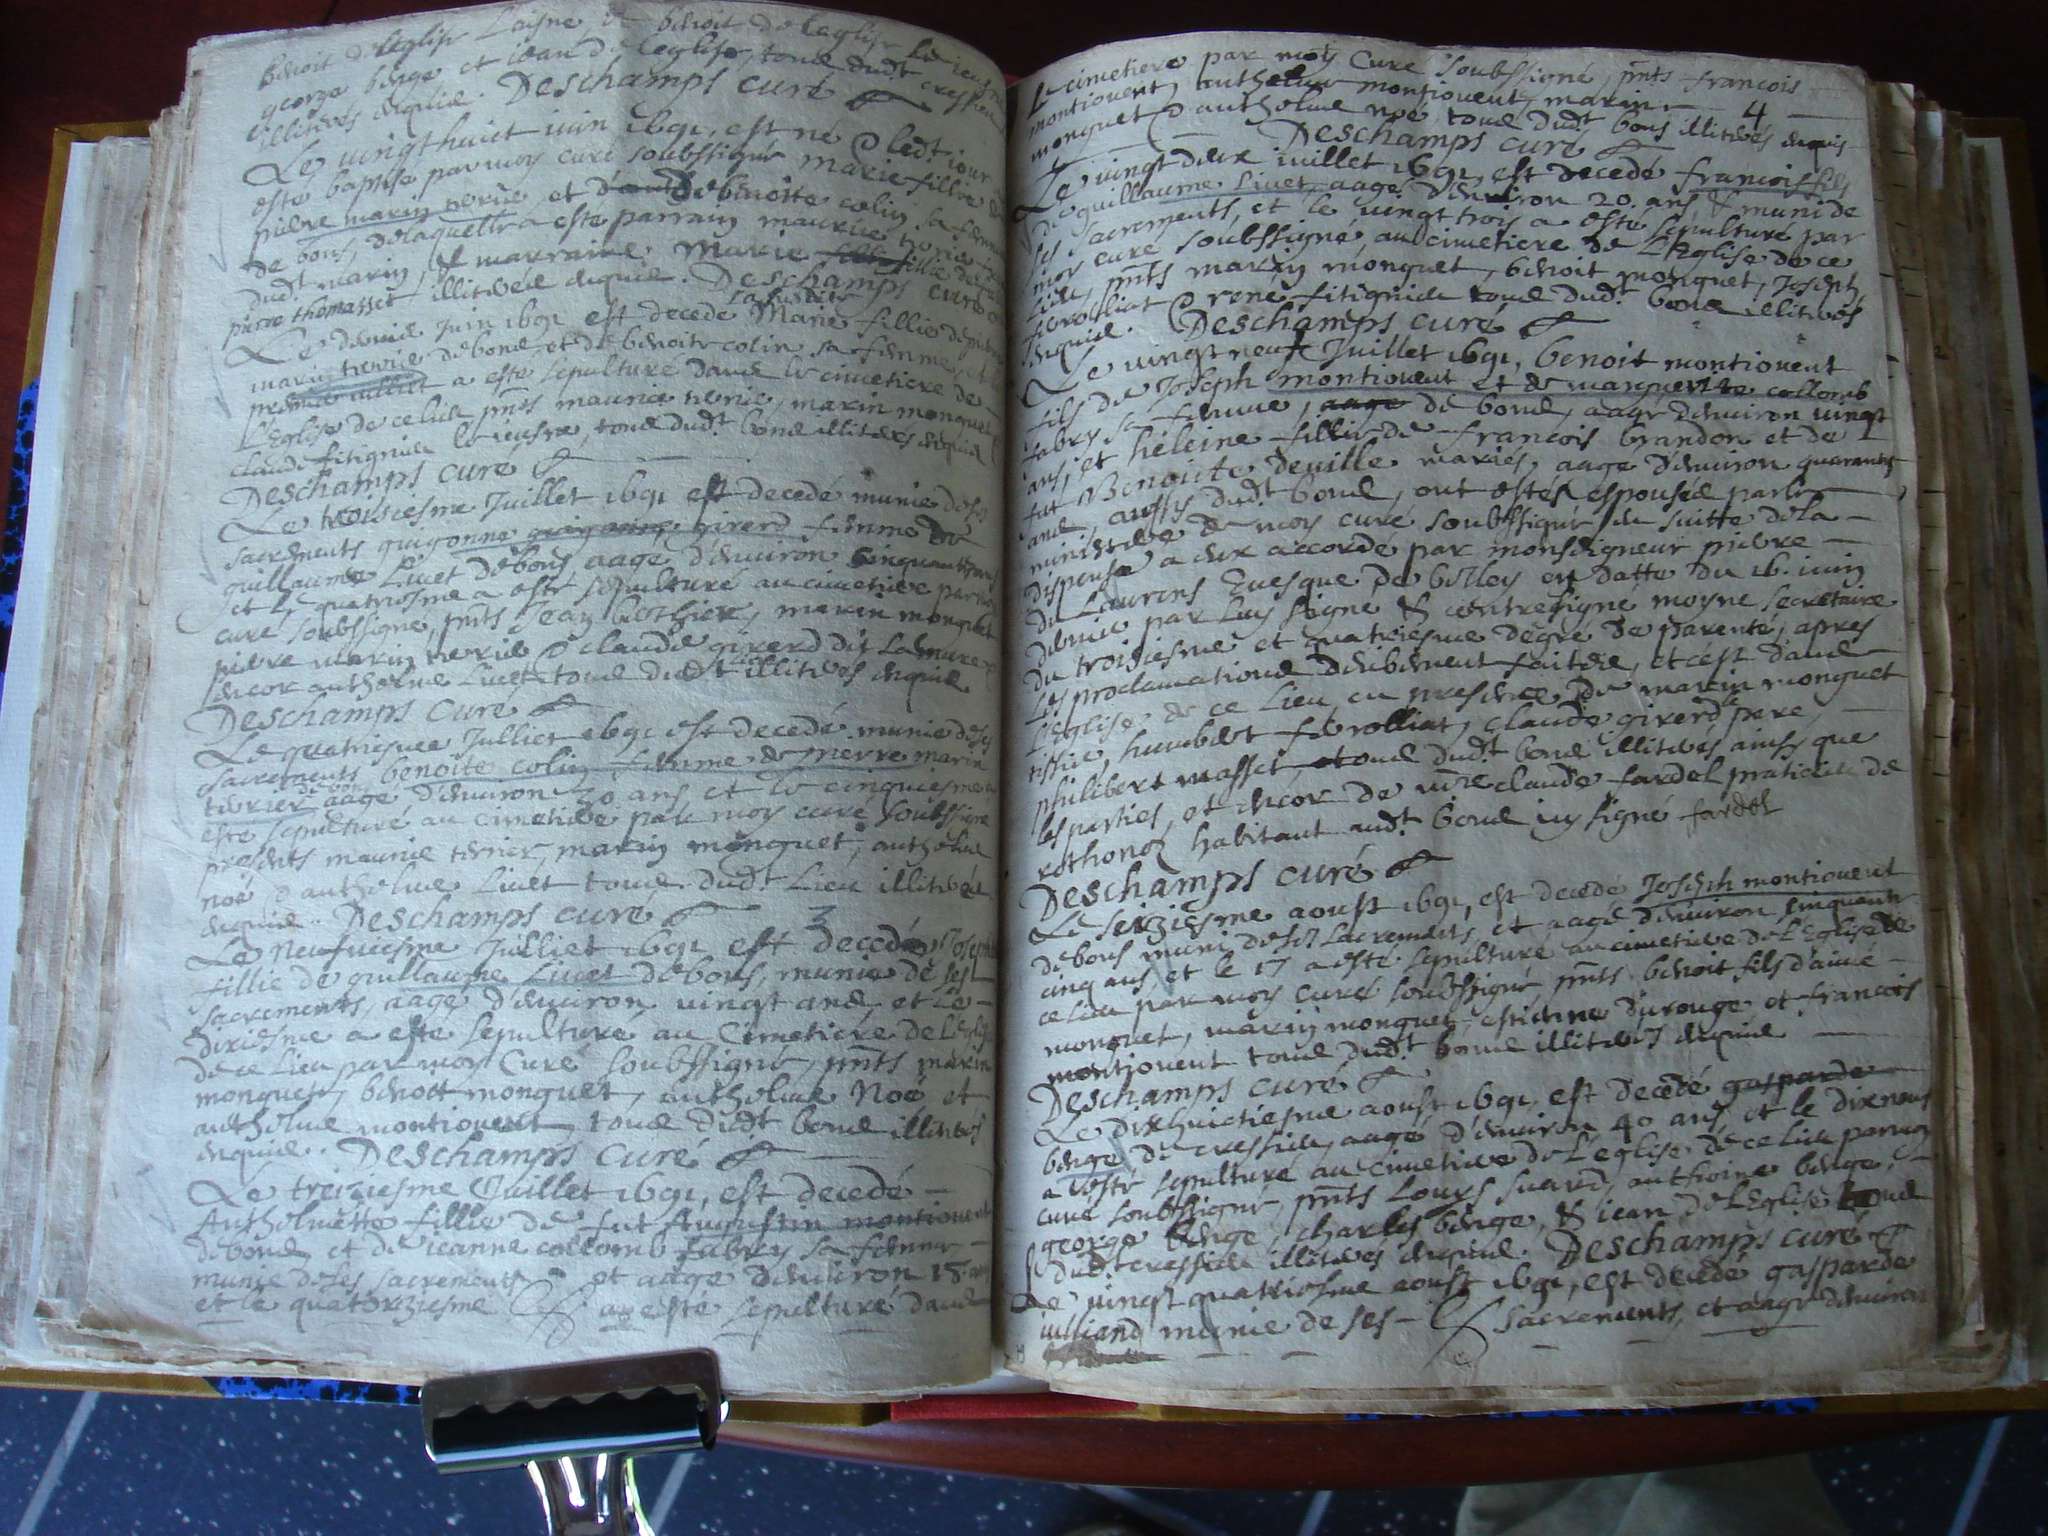 benoit de leglise laisne et benoit de leglise le jeusne
george berge et jean de leglise, tous dudt cressieu
illiterés enquis. Deschamps curé
Le vingthuict iuin 1691, est né & ledt iour a
esté baptisé par moy curé soubssigné marie fillie de
pierre marin et de benoitte colin sa femme
de bons, de laquelle a esté parrain maurice
dudt marin, & marraine Marie fillie de feu
pierre thomasset illiterée enquise. Deschamps curé
Le dernie Juin 1691 est decedé Marie fillie de pierre
marin de bons, et de benoite colin sa femme, et le
premier iuillet a esté sepulturé dans le cimetiere de
L'Eglise de ce lieu pnts maurice marin monguet
claude fitignieu le ieusne, tous dudt bons illiterés enquis
Deschamps curé
Le troisiesme Juillet 1691 est decedé munie de ses
sacrements guigonne girerd femme de
guillaume Livet de bons aagé d'environ cinquante ans
et le quatriesme a esté sepulturé au cimetiere par moy
curé soubssigné, pnts Jean marin monguet
pierre marin & claude girerd dit
encor anthelme Livet tous dudt illiterés enquis
Deschamps curé
Le quatriesme Julliet 1691 est decedé munie de ses
sacrements benoite colin femme de pierre marin
de bons aagé d'environ 30 ans et le cinquiesme a
esté sepulturé au cimetiere par moy curé soubssigné
presents maurice marin monguet, anthelme
noé & anthelme Livet tous dudt Lieu illiterés
enquis. Deschamps curé 3
Le Neufviesme Julliet 1691 est decedé Josephe
fillie de guillaume Livet de bons, munie de ses
sacrements, aagé d'environ vingt ans, et le
dixiesme a esté sepulturé au Cimetiere de l'Eglise
de ce Lieu par moy Curé soubssigné, pnts marin
monguet, benoit monguet, anthelme Noé et
anthelme montiouent tous dudt bons illiterés
enquis. Deschamps Curé
Le treiziesme Juillet 1691, est decedé
Anthelmette fillie de fut Augustin montiouent
de bons et de ieanne collomb fabry sa femme
munie de ses sacrements et aagé d'environ 18 ans
et le quatorziesme a esté sepulturé dans
Le cimetiere par moy Curé soubssigné, pnts francois
montiouent, anthelme montiouent, marin 4
monguet & anthelme noé tous dudt bons illiterés enquis
Deschamps curé
Le vingt deux iuillet 1691, est decedé francois fils
de guillaume Livet, aagé d'environ 20 ans, & muni de
ses sacrements, et le vingt trois a esté sepulturé par
moy curé soubssigné, au cimetiere de L'Eglise de ce
Lieu, pnts marin monguet, benoit monguet, Joseph
ferrolliat & rené fitignieu tous dudt bons illiterés
enquis. Deschamps curé
Le vingt neuf Juillet 1691, benoit montiouent
fils de Joseph montiouent et de marguerite collomb
fabry sa femme, aagé de bons, aagé d'environ vingt
ans, et heleine fillie de francois brandon et de
fut Benoite deville mariés, aagé d'environ quarante
ans, aussy dudt bons, ont estés espousés par le
ministere de moy curé soubssigné en suitte de la
dispense a eux accordé par monseigneur pierre
du Laurens Evesque de belley en datte du 16 iuin
dernier par luy signé & contresigné moyne secretaire
du troisiesme et quatriesme degré de parenté, apres
les proclamations deubement faites, et c'est dans
L'Eglise de ce Lieu, en presence de marin monguet
tissier, humbert ferrolliat, claude girerd le pere,
philibert masset, tous dudt bons illiterés ainsy que
les parties, et encor de me claude fardel praticien de
rothonod habitant audt bons icy signé fardel
Deschamps curé
Le seiziesme aoust 1691, est decedé Joseph montiouent
de bons muni de ses sacrements, et aagé d'environ cinquante
cinq ans, et le 17 a esté sepulturé au cimetiere de L'Eglise de
ce lieu par moy curé soubssigné pnts benoit fils d'aimé
monguet, marin monguet, estienne durouge, et francois
montiouent tous dudt bons illiterés enquis
Deschamps curé
Le dixhuictiesme aoust 1691, est decedé gasparde
berge de cressieu, aagé d'environ 40 ans, et le dixneuf
a esté sepulturé au cimetiere de L'église de ce lieu par moy
curé soubssigné, pnts Louys suard, anthoine berge,
george berge, charles berge, & iean de L'Eglise tous
dudt cressieu illiterés enquis. Deschamps curé
Le vingt quatriesme aoust 1691, est decedé gasparde
iulliand munie de ses sacrements, et aagé d'environ